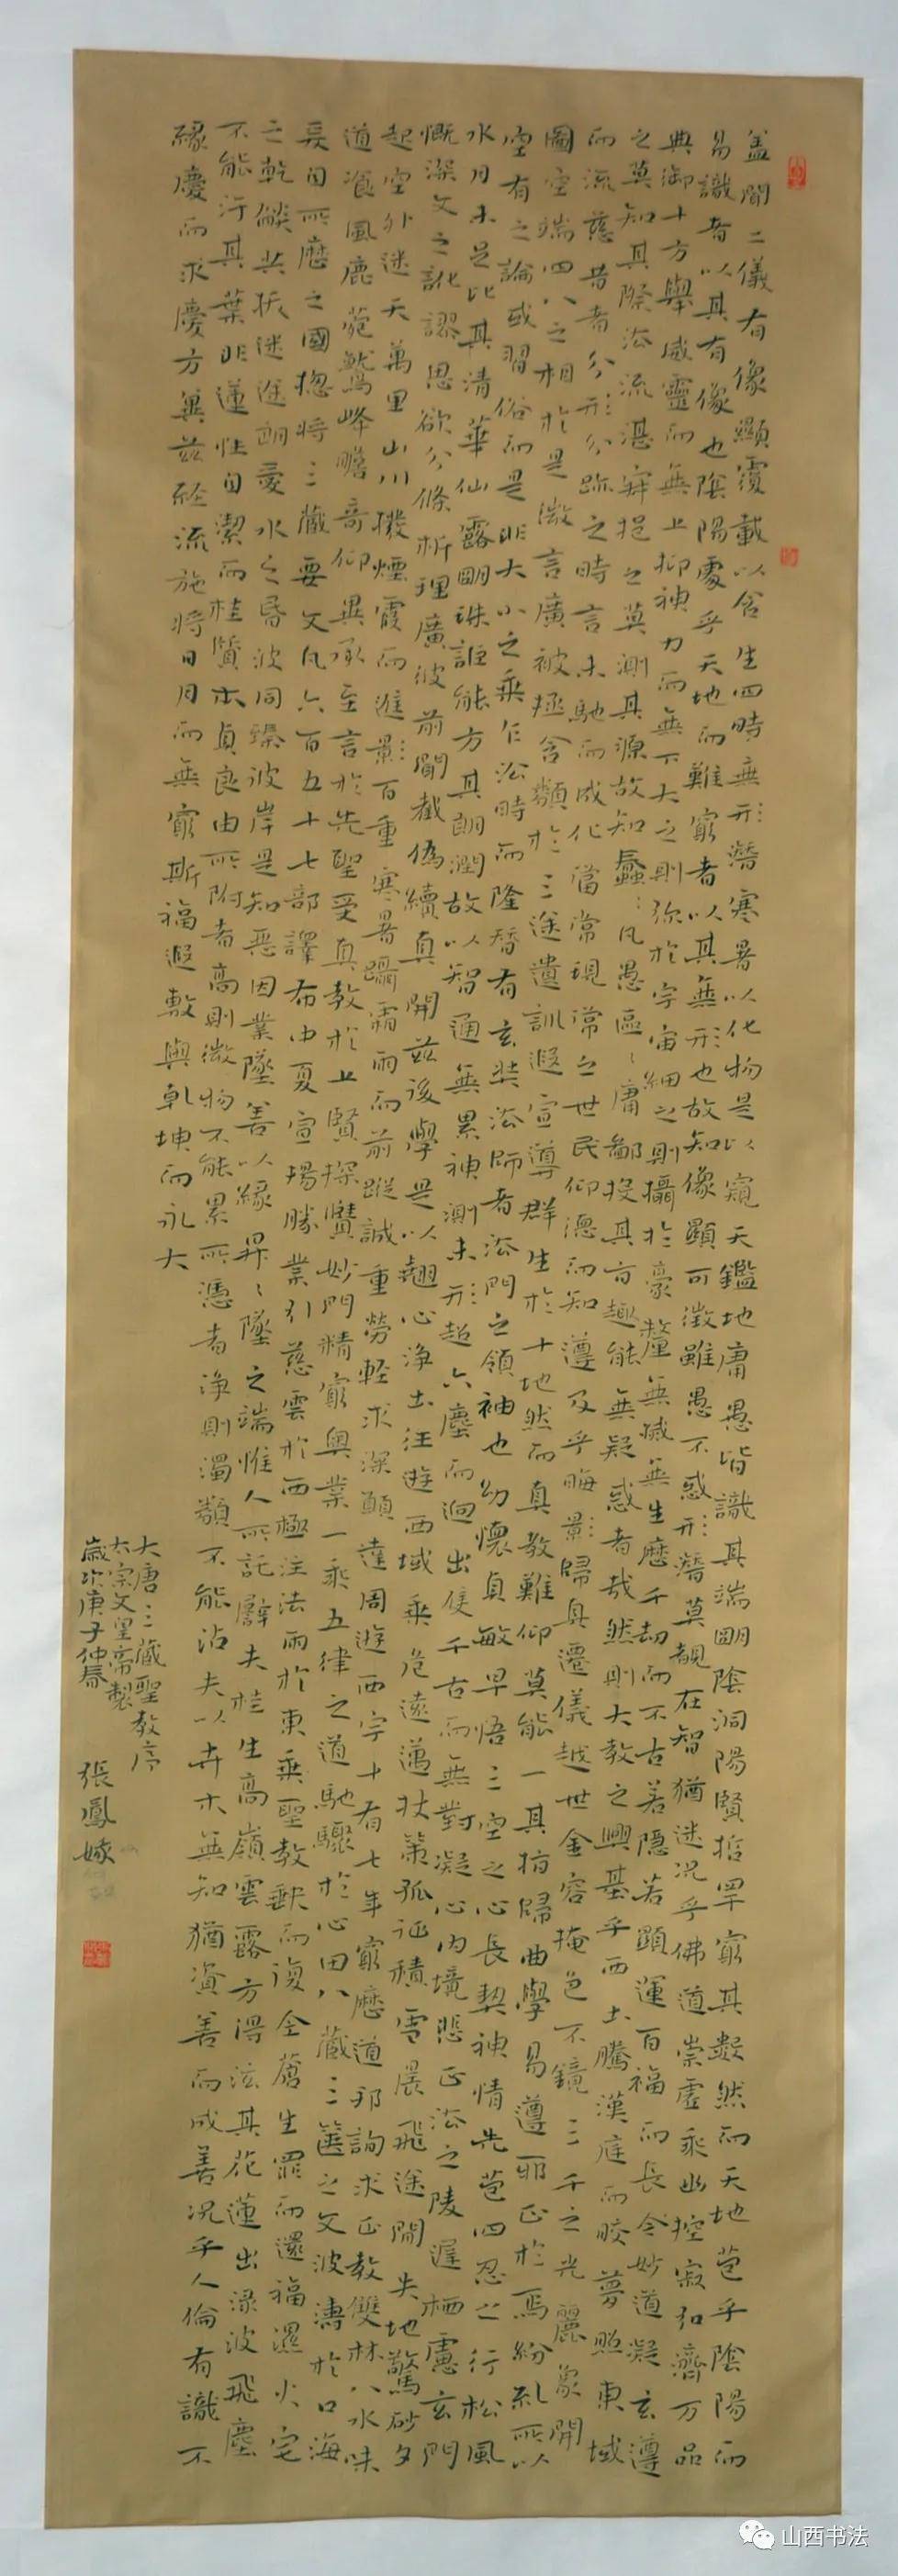 盖聞二儀有像顯覆載以含生四時無形潛寒暑以化物是以窺天鑑地庸愚皆識其端明陰洞陽賢哲罕窮其數然而天地苞乎陰陽而
易識者以其有像也陰陽處乎天地而難窮者以其無形也故知像顯可徵雖愚不惑形潛莫覩在智猶迷況乎佛道崇虛乘幽控寂弘濟万品
典御十方舉威靈而無上抑神力而無下大之則弥於宇宙細之則攝於豪釐無滅無生歷千劫而不古若隱若顯運百福而長今妙道凝玄遵
之莫知其際法流湛寂挹之莫測其源故知蠢〻凡愚區〻庸鄙投其旨趣能無疑惑者哉然則大教之興基乎西土騰漢庭而皎夢照東域
而流慈昔者分形分跡之時言未馳而成化當常現常之世民仰德而知遵及乎晦影歸真遷儀越世金容掩色不鏡三千之光麗象開
圖空端四八之相於是微言廣被拯含類於三途遺訓遐宣導群生於十地然而真教難仰莫能一其指歸曲學易遵邪正於焉紛糺所以
空有之論或習俗而是非大小之乘乍沿時而隆替有玄奘法師者法門之領袖也幼懷貞敏早悟三空之心長契神情先苞四忍之行松風
水月未足比其清華仙露明珠詎能方其朗潤故以智通無累神測未形超六塵而迥出隻千古而無對凝心内境悲正法之陵遲栖慮玄門
慨深文之訛謬思欲分條析理廣彼前聞截偽續真開茲後學是以翹心淨土往遊西域乘危遠邁杖策孤征積雪晨飛途間失地驚砂夕
起空外迷天萬里山川撥煙霞而進影百重寒暑躡霜雨而前蹤誠重勞輕求深願達周遊西宇十有七年窮歷道邦詢求正教雙林八水味
道飡風鹿菀鷲峰瞻奇仰異承至言於先聖受真教於上賢探賾妙門精窮奧業一乘五律之道馳驟於心田八藏三篋之文波濤於口海
爰自所歷之國揔將三藏要文凡六百五十七部譯布中夏宣揚勝業引慈雲於西極注法雨於東乘聖教缺而復全蒼生罪而還福濕火宅
之乾燄共拔迷途朗愛水之昏波同臻彼岸是知惡因業墜善以緣昇〻墜之端惟人所託辟夫桂生高嶺雲露方得泫其花蓮出渌波飛塵
不能汙其葉非蓮性自潔而桂質本貞良由所附者高則微物不能累所憑者淨則濁類不能沾夫以卉木無知猶資善而成善况乎人倫有識不
緣慶而求慶方冀茲經流施將日月而無窮斯福遐敷與乹坤而永大
大唐三藏聖教序
太宗文皇帝製
歲次庚子仲春 張鳳嫁
山西书法